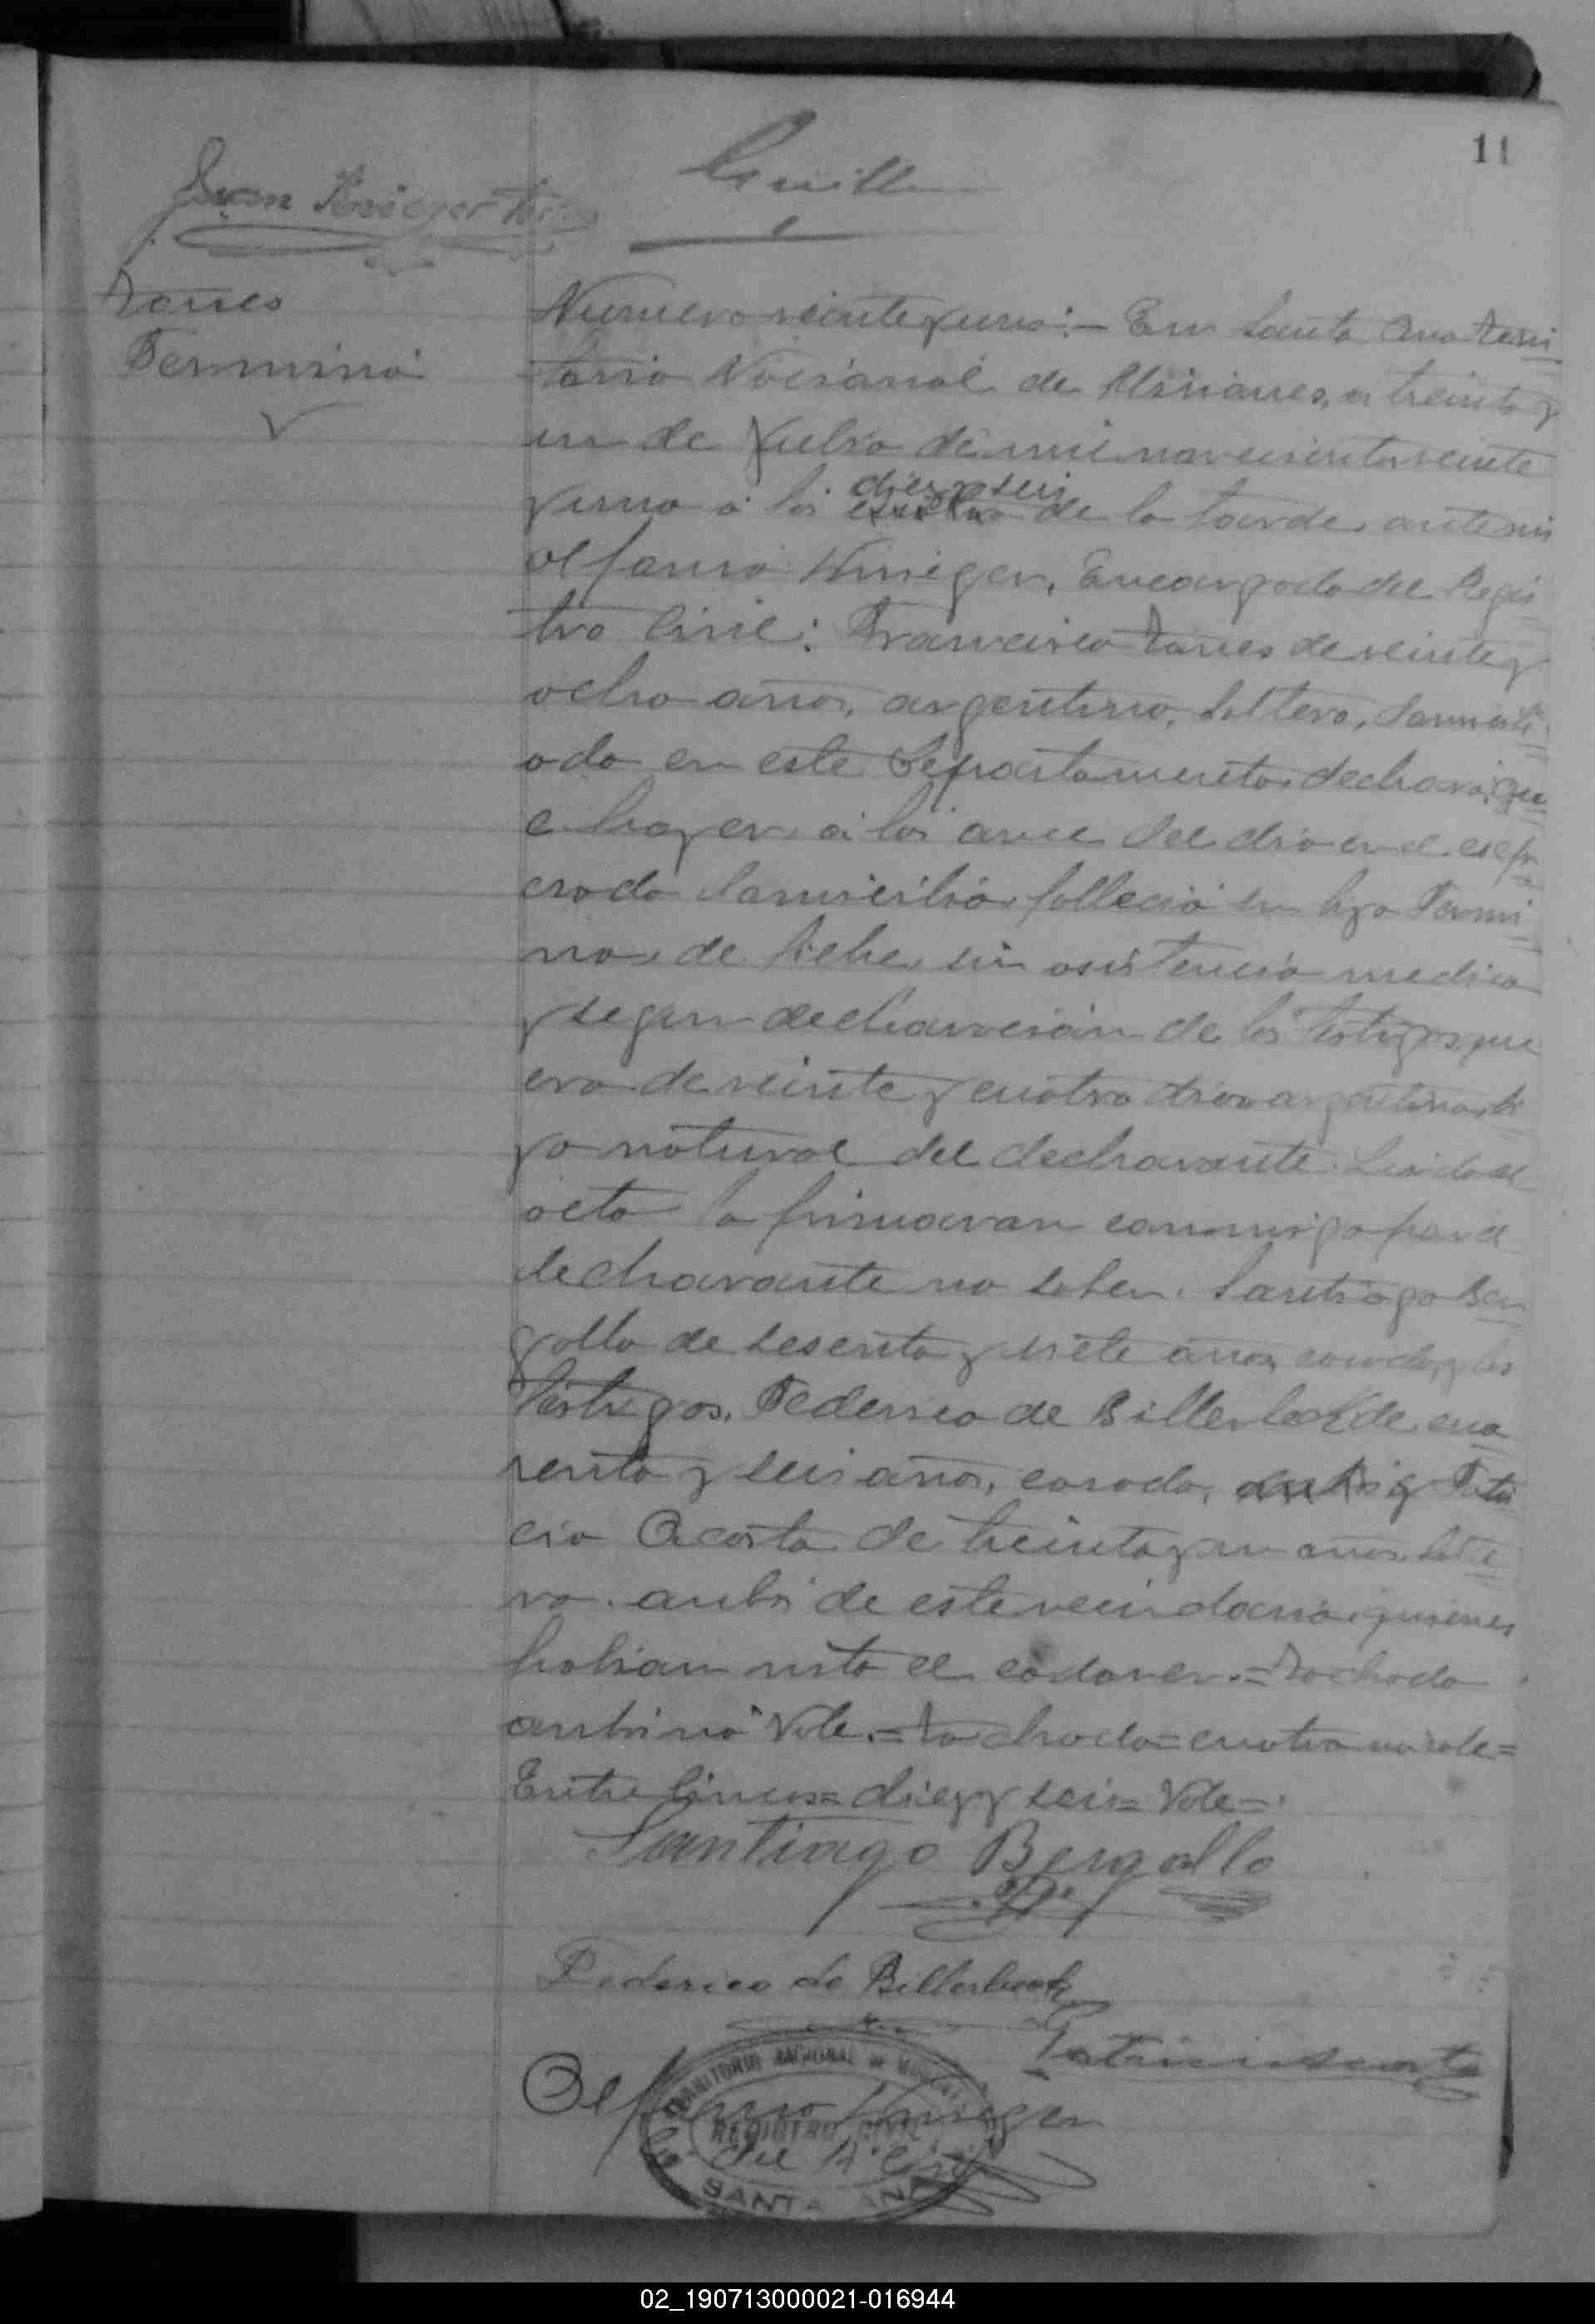 11
Juan Krieger
Torres
Fermino
Numero veinte y uno:– En Santa Ana Terri
torio Nacional de Misiones, a treinta y
un de Julio de mil novecientos veinte
y uno a las diez y seis cuatro de la tarde, ante mi
Alfonso Krieger, Encargado del Regis
tro Civil: Francisco Torres de veinte y
ocho años, argentino, soltero, domicili
ado en este Departamento, declaro: qu
e hayer a las once del dia en el espr
esado domicilio fallecio su hijo Fermi
no, de fiebre, sin asistencia medica
y segun declaracion de los testigos que
era de veinte y cuatro dias argentino, hi
jo natural del declarante. Leida el
acta la firmaran conmigo por el
declarante no saber. Santiago Ber
gallo de sesenta y siete años, casado, y los
testigos, Federico de Billerbeck de cua
renta y seis años, casado, y Patri
cio Acosta de treinta y un años, solte
ro. anbos de este vecindario, quienes
habian visto el cadaver.= Tachado
anbos no Vale.= Tachado= cuatro no vale=
Entre lineas= diez y seis= Vale=.
Santiago Bergallo
Federico de Billerbeck
Patricio Acosta
Alfonso Krieger
TERRITORIO NACIONAL DE MISIONES
REGISTRO CIVIL
Enc. del R. Civil
SANTA ANA
02_190713000021-016944